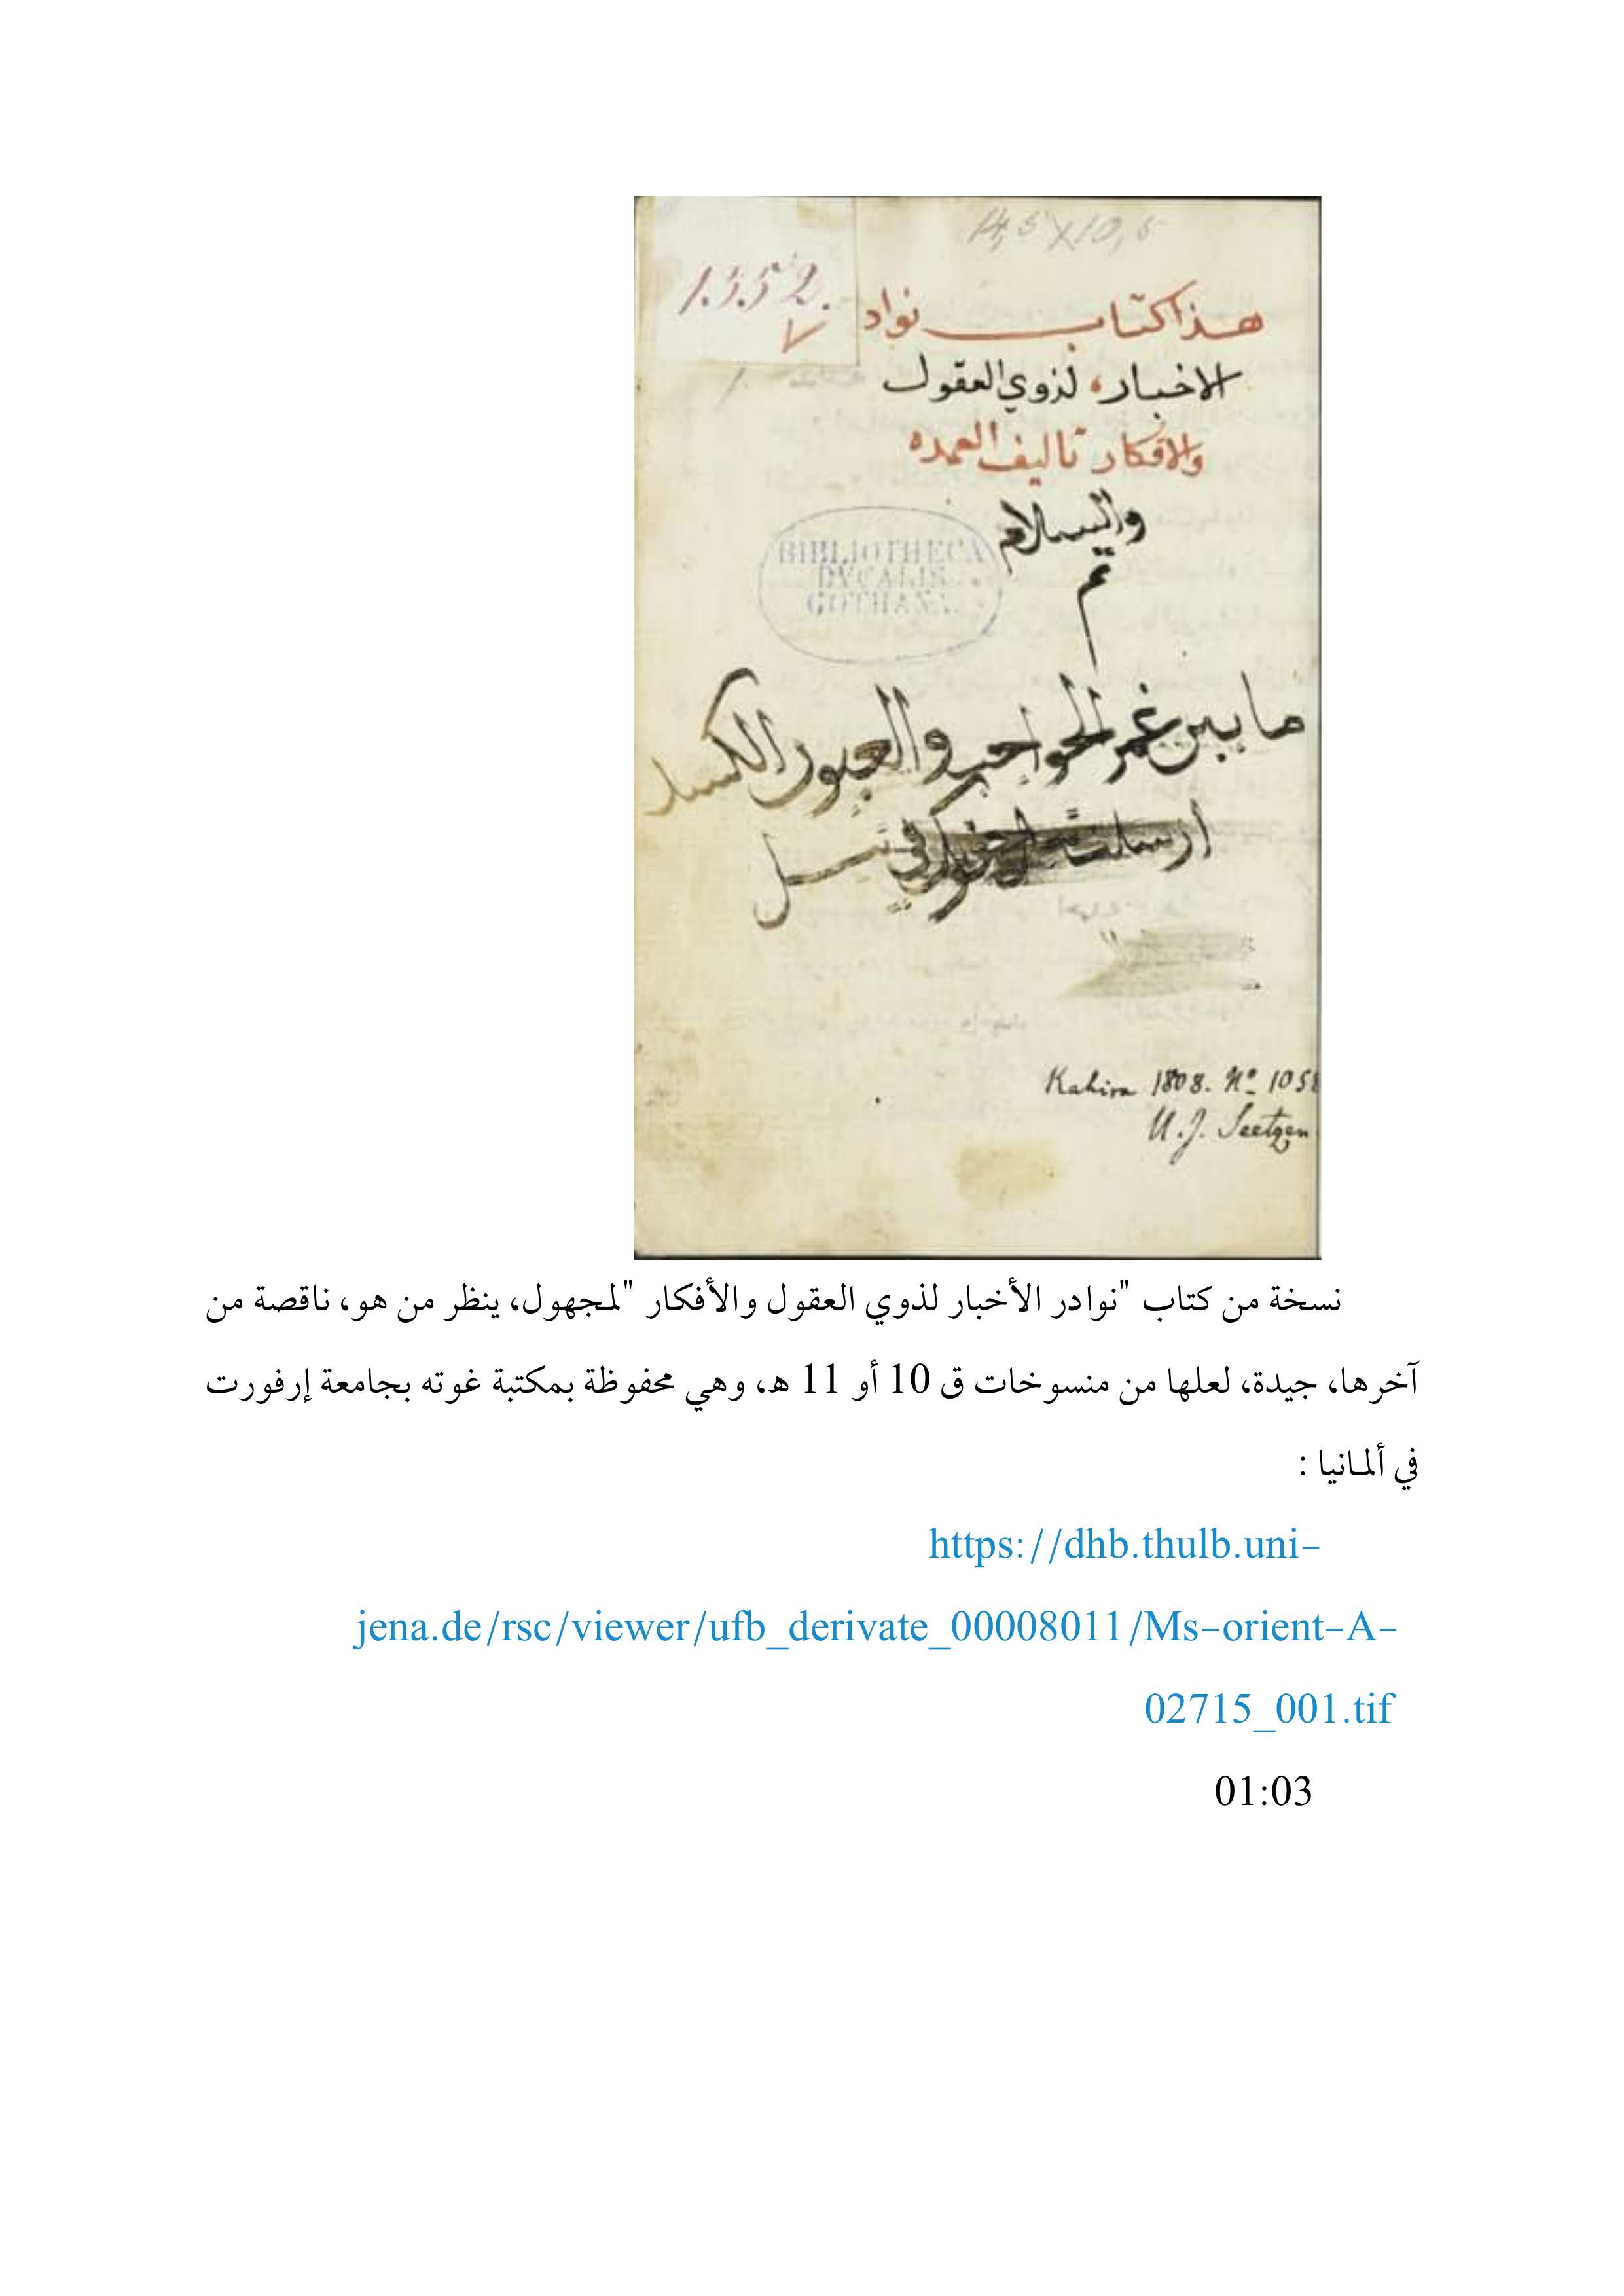 14,5 X 10,5
هذا كتاب نواد
1.5.5 2.
الاخبار، لذوي العقول
والافكار تاليف العمده
والسلام
تم
BIBLIOTHECA
DVCALIS
GOTHANA.
ما بين غمر الحواجب والعيون
ارسلت في
Kahira 1808. No 1058
U. J. Seetzen
نسخة من كتاب "نوادر الأخبار لذوي العقول والأفكار "لمجهول، ينظر من هو، ناقصة من
آخرها، جيدة، لعلها من منسوخات ق 10 أو 11 هـ، وهي محفوظة بمكتبة غوته بجامعة إرفورت
في ألمانيا :
https://dhb.thulb.uni-
jena.de/rsc/viewer/ufb_derivate_00008011/Ms-orient-A-
02715_001.tif
01:03